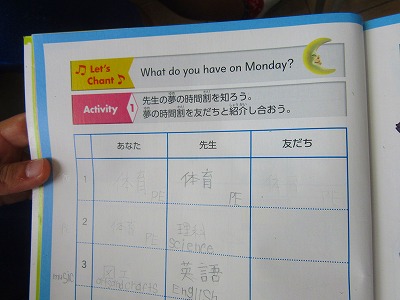 Let's
Chant
What do you have on Monday?
Activity 1
先生の夢の時間割を知ろう。
夢の時間割を友だちと紹介し合おう。
あなた 先生 友だち
1 体育 体育
PE PE
2 理科
PE science
3 英語
music English